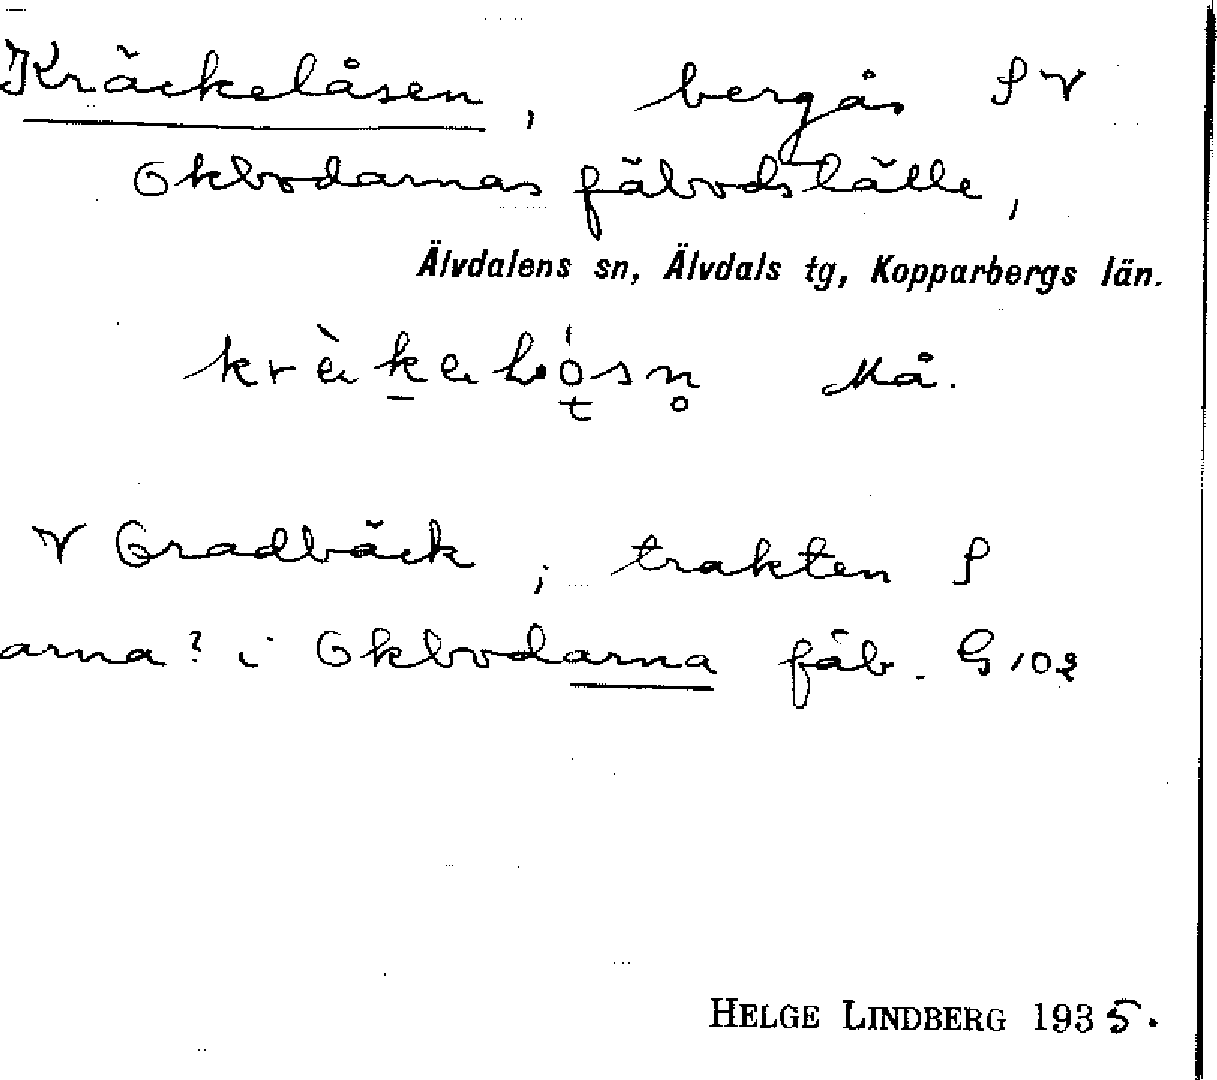 Kräckelåsen, bergås SV
Okbodarnas fäbodställe,
Älvdalens sn, Älvdals tg, Kopparbergs län.
Må.
V Gradbäck, trakten S
arna? i Okbodarna fäb. G 102
HELGE LINDBERG 1935.